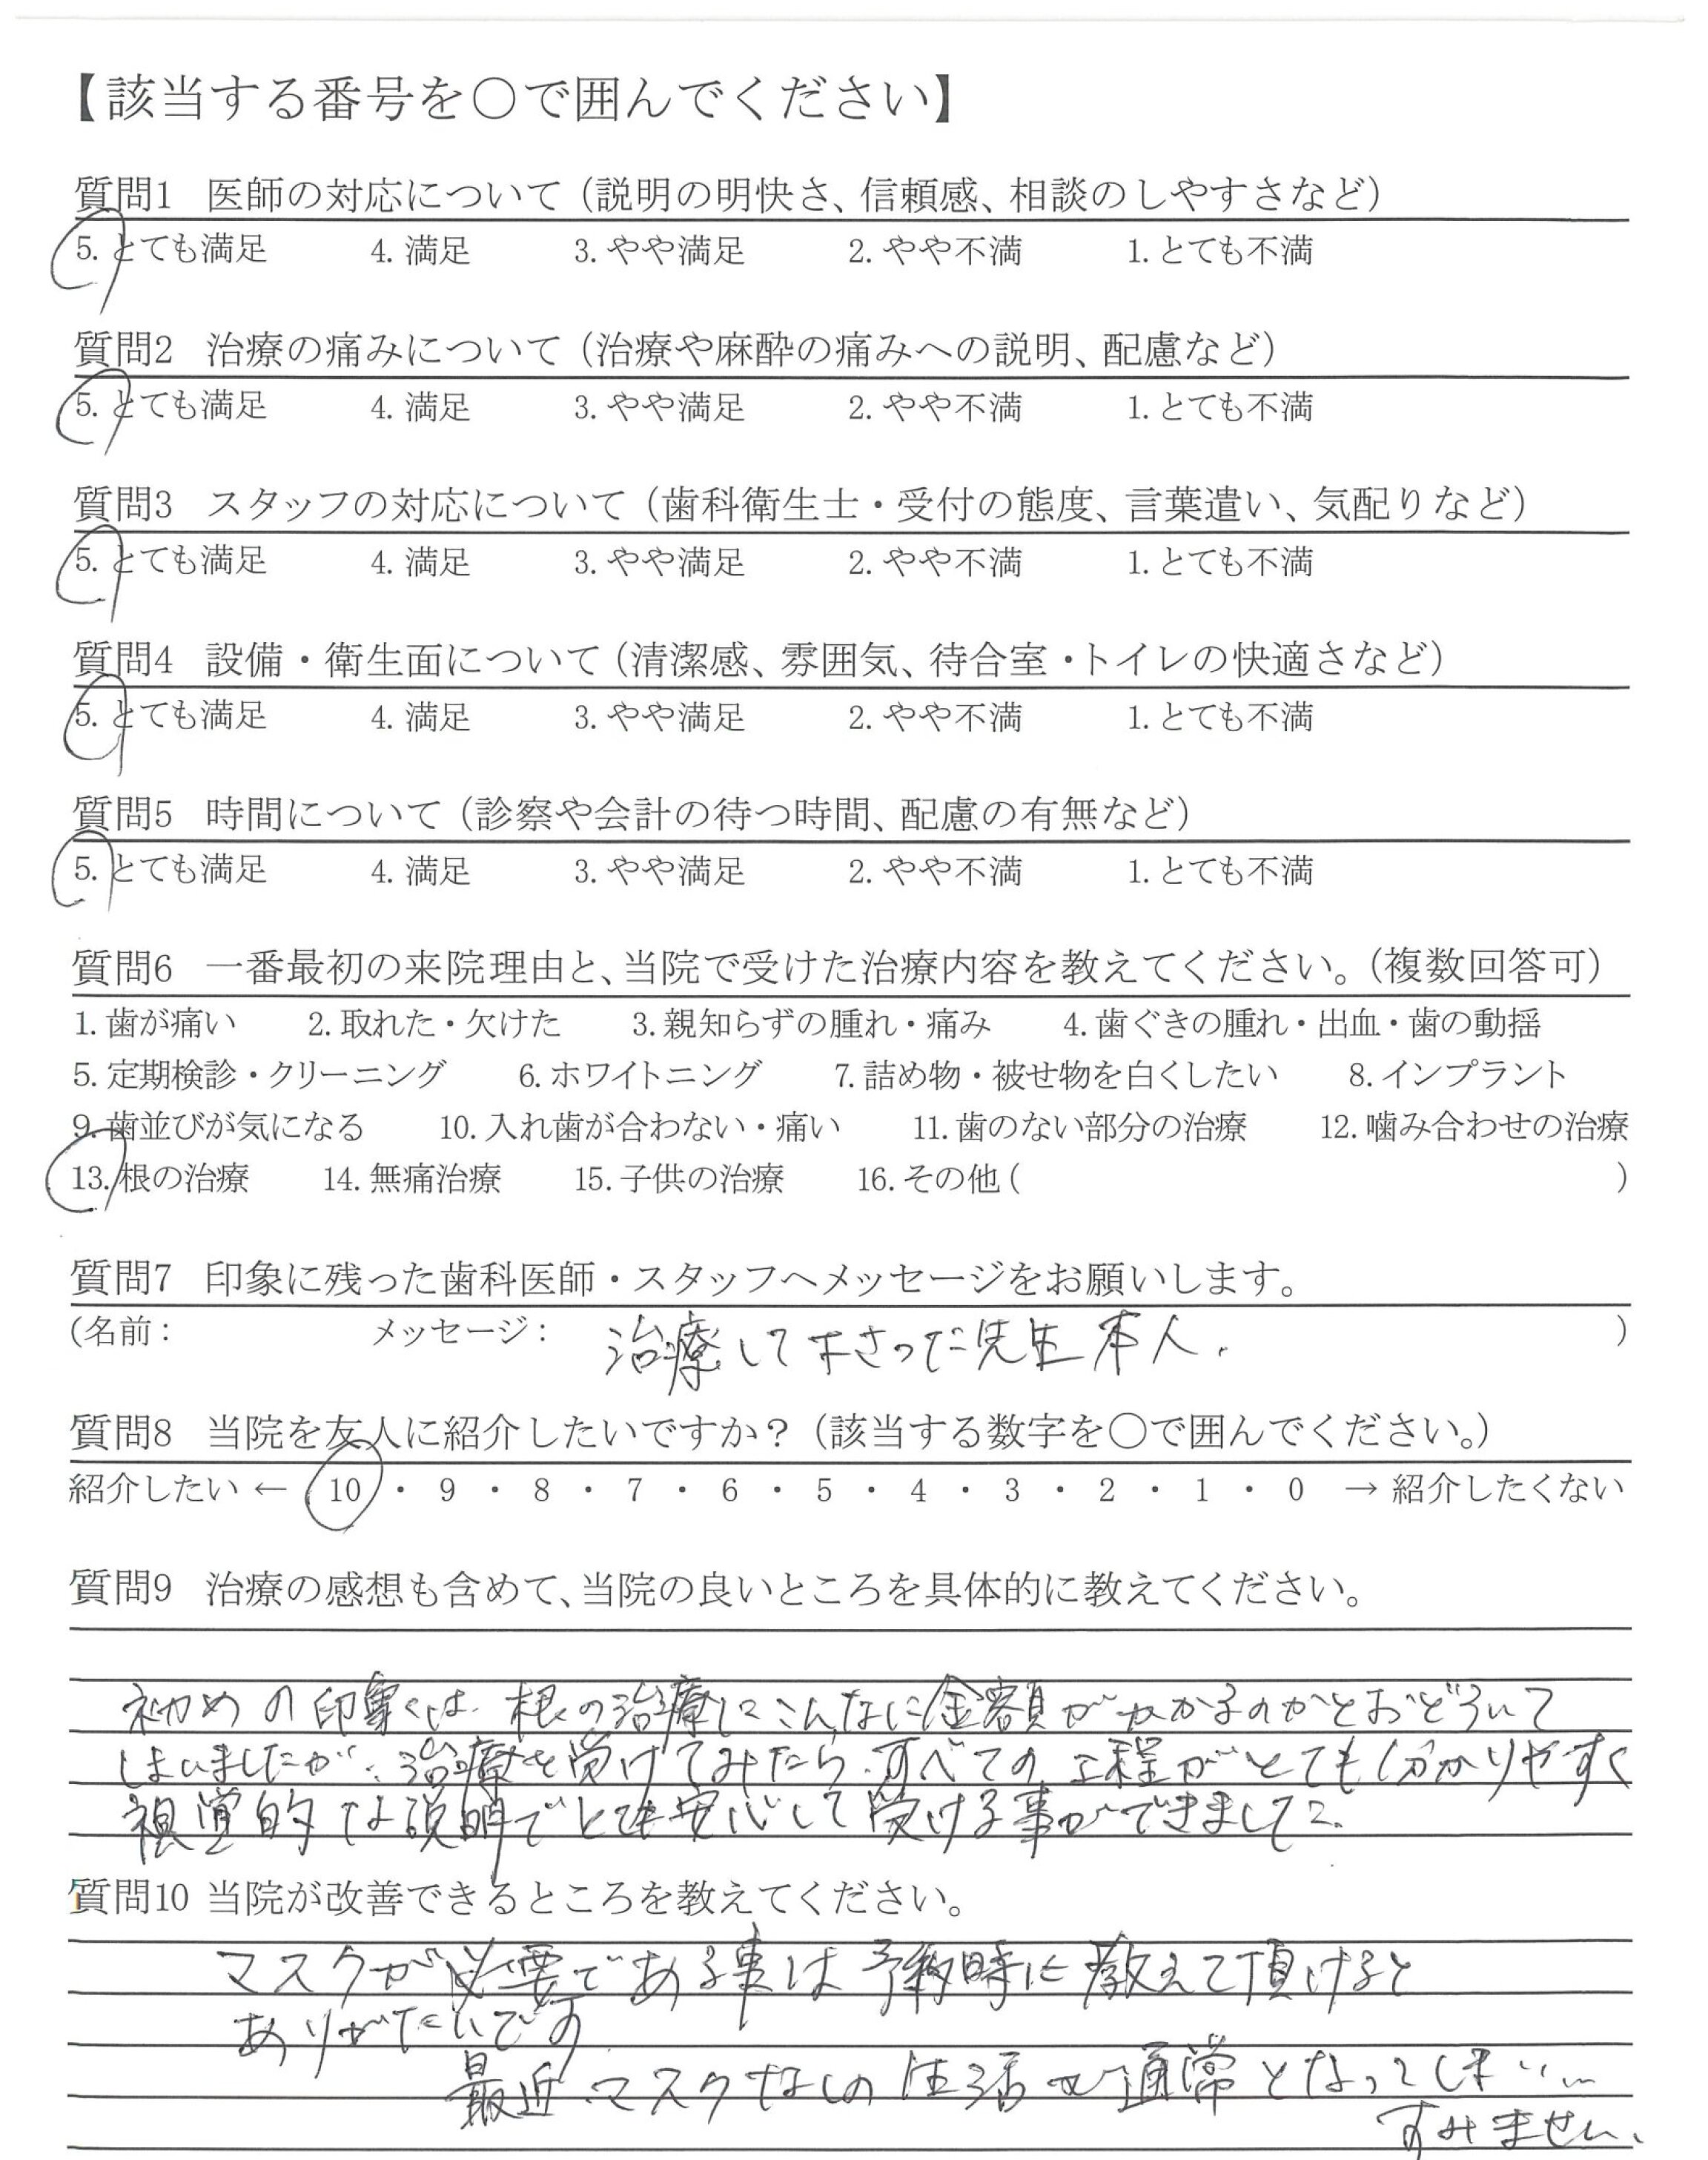 【該当する番号を〇で囲んでください】
質問1 医師の対応について（説明の明快さ、信頼感、相談のしやすさなど）
5. とても満足 4. 満足 3. やや満足 2. やや不満 1. とても不満
質問2 治療の痛みについて（治療や麻酔の痛みへの説明、配慮など）
5. とても満足 4. 満足 3. やや満足 2. やや不満 1. とても不満
質問3 スタッフの対応について（歯科衛生士・受付の態度、言葉遣い、気配りなど）
5. とても満足 4. 満足 3. やや満足 2. やや不満 1. とても不満
質問4 設備・衛生面について（清潔感、雰囲気、待合室・トイレの快適さなど）
5. とても満足 4. 満足 3. やや満足 2. やや不満 1. とても不満
質問5 時間について（診察や会計の待つ時間、配慮の有無など）
5. とても満足 4. 満足 3. やや満足 2. やや不満 1. とても不満
質問6 一番最初の来院理由と、当院で受けた治療内容を教えてください。（複数回答可）
1. 歯が痛い 2. 取れた・欠けた 3. 親知らずの腫れ・痛み 4. 歯ぐきの腫れ・出血・歯の動揺
5. 定期検診・クリーニング 6. ホワイトニング 7. 詰め物・被せ物を白くしたい 8. インプラント
9. 歯並びが気になる 10. 入れ歯が合わない・痛い 11. 歯のない部分の治療 12. 噛み合わせの治療
13. 根の治療 14. 無痛治療 15. 子供の治療 16. その他（ ）
質問7 印象に残った歯科医師・スタッフへメッセージをお願いします。
（名前： メッセージ： 治療して下さった先生本人. ）
質問8 当院を友人に紹介したいですか？（該当する数字を〇で囲んでください。）
紹介したい ← 10 ・ 9 ・ 8 ・ 7 ・ 6 ・ 5 ・ 4 ・ 3 ・ 2 ・ 1 ・ 0 → 紹介したくない
質問9 治療の感想も含めて、当院の良いところを具体的に教えてください。
初めの印象は、根の治療にこんなに金額がかかるのかとおどろいて
しまいましたが、治療を受けてみたら、すべての工程がとても分かりやすく
視覚的な説明でとても安心して受ける事ができました。
質問10 当院が改善できるところを教えてください。
マスクが必要である事は予約時に教えて頂けると
ありがたいです
最近、マスクなしの生活が通常となってしまい…
すみません、